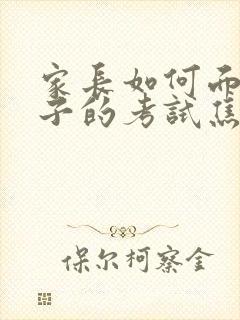 家長如何面
子的考試焦
保尔柯察金